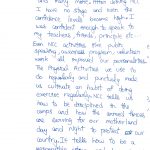 and many more. After doing NCC
I have no stage and born the
confidence levels become higher. I
got confident enough to speak to
my teachers, friends, principle etc
Even NCC activities like public
speaking, awareness program, volunteer
work all expand our personalities.
The Physical Activities we used to
do regularly and punctual make
us cultivate an habit of doing
exercise regularly. NCC tells us
how to be disciplined in the
camps and how the armed forces
are serving for our motherland
day and night to protect our
country. It tells how to be a